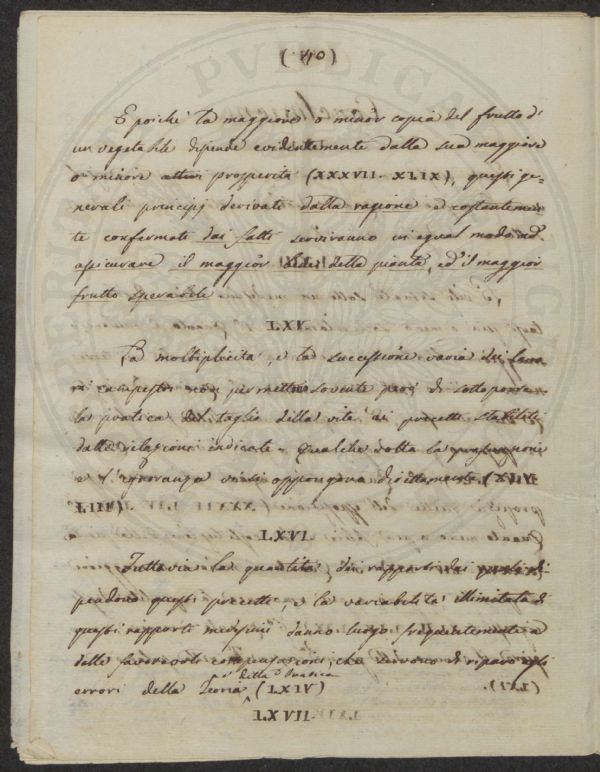 (40)
E poichè la maggiore o minor copia del frutto d'
un vegetabile dipende evidentemente dalla sua maggiore
o minore prosperità (XXXVII. XLIX), questi ge-
nerali principj derivati dalla ragione e costantemen-
te confermati dai fatti serviranno in egual modo ad
assicurare il maggior della pianta, ed il maggior
frutto sperabile
LXV.
La moltiplicità, e la successione varia dei lavo-
ri campestri non permette sovente però di sottoporre
la pratica del taglio della vite ai precetti stabiliti
dalle relazioni indicate. Qualche volta la prevenzione
e l'ignoranza vi si oppongono direttamente
LXVI.
Tuttavia la quantità dei rapporti dai quali di-
pendono questi precetti, e la variabilità illimitata di
questi rapporti medesimi danno luogo frequentemente a
delle favorevoli compensazioni, che servono di riparo agli
errori della Teoria e della Pratica (LXIV)
LXVII.